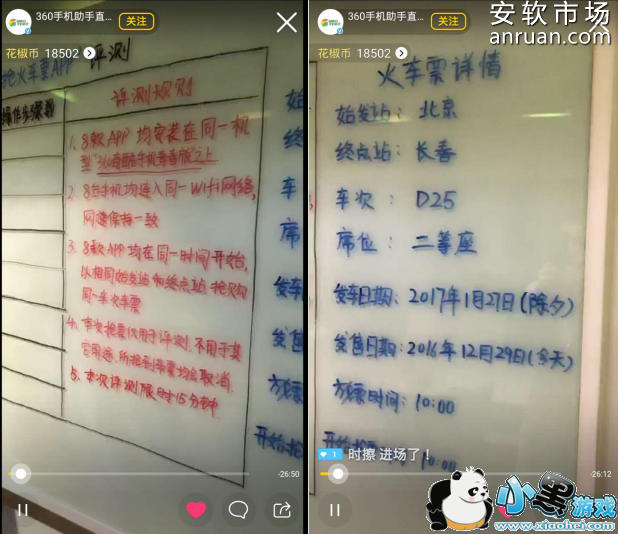 360手机助手直...
关注
花椒币 18502
抢火车票APP 评测
操作步骤数
评测规则
1. 8款APP 均安装在同一机
型"360奇酷手机青春版"之上
2. 8台手机均连入同一WiFi网络,
网速保持一致
3. 8款APP均在同一时间开始台,
以相同始发站和终点站 抢购
同一车次车票
4. 本次抢票仅用于评测,不用于其
它用途,所抢到车票均会取消.
5. 本次评测限时15分钟
始
终
车
席
发车
发售
放票
开始抢
-26:50
360手机助手直...
关注
安软市场
anruan.com
花椒币 18502
火车票详情
始发站: 北京
终点站: 长春
车次: D25
席位: 二等座
发车日期: 2017年1月27日(除夕)
发售日期: 2016年12月29日(今天)
放票时间: 10:00
开始抢
10:00
1 时擦 进场了!
-26:12
小黑游戏
www.xiaohei.com